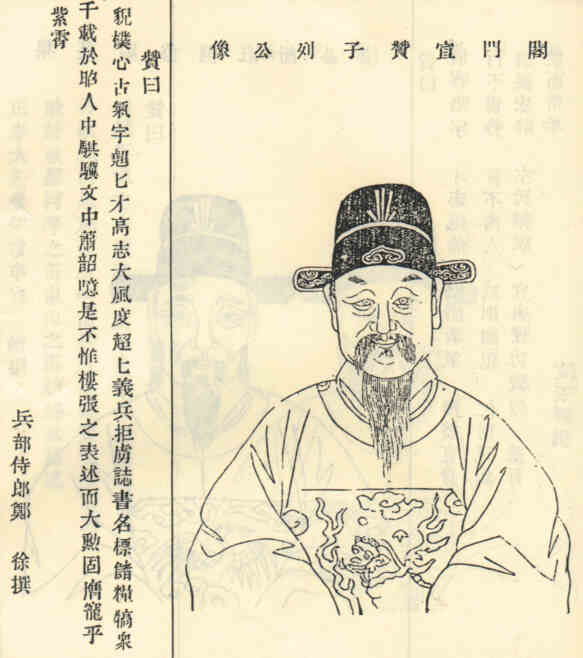 閣門宣贊子列公像
贊曰
貌樸心古氣字翹匕才高志大風度超匕義兵拒虜誌書名標餚糧犒衆
千載於昭人中騏驥文中蕭韶噫是不惟樓張之表述而大勳固磨籠乎
紫霄
兵部侍郎鄭 徐撰